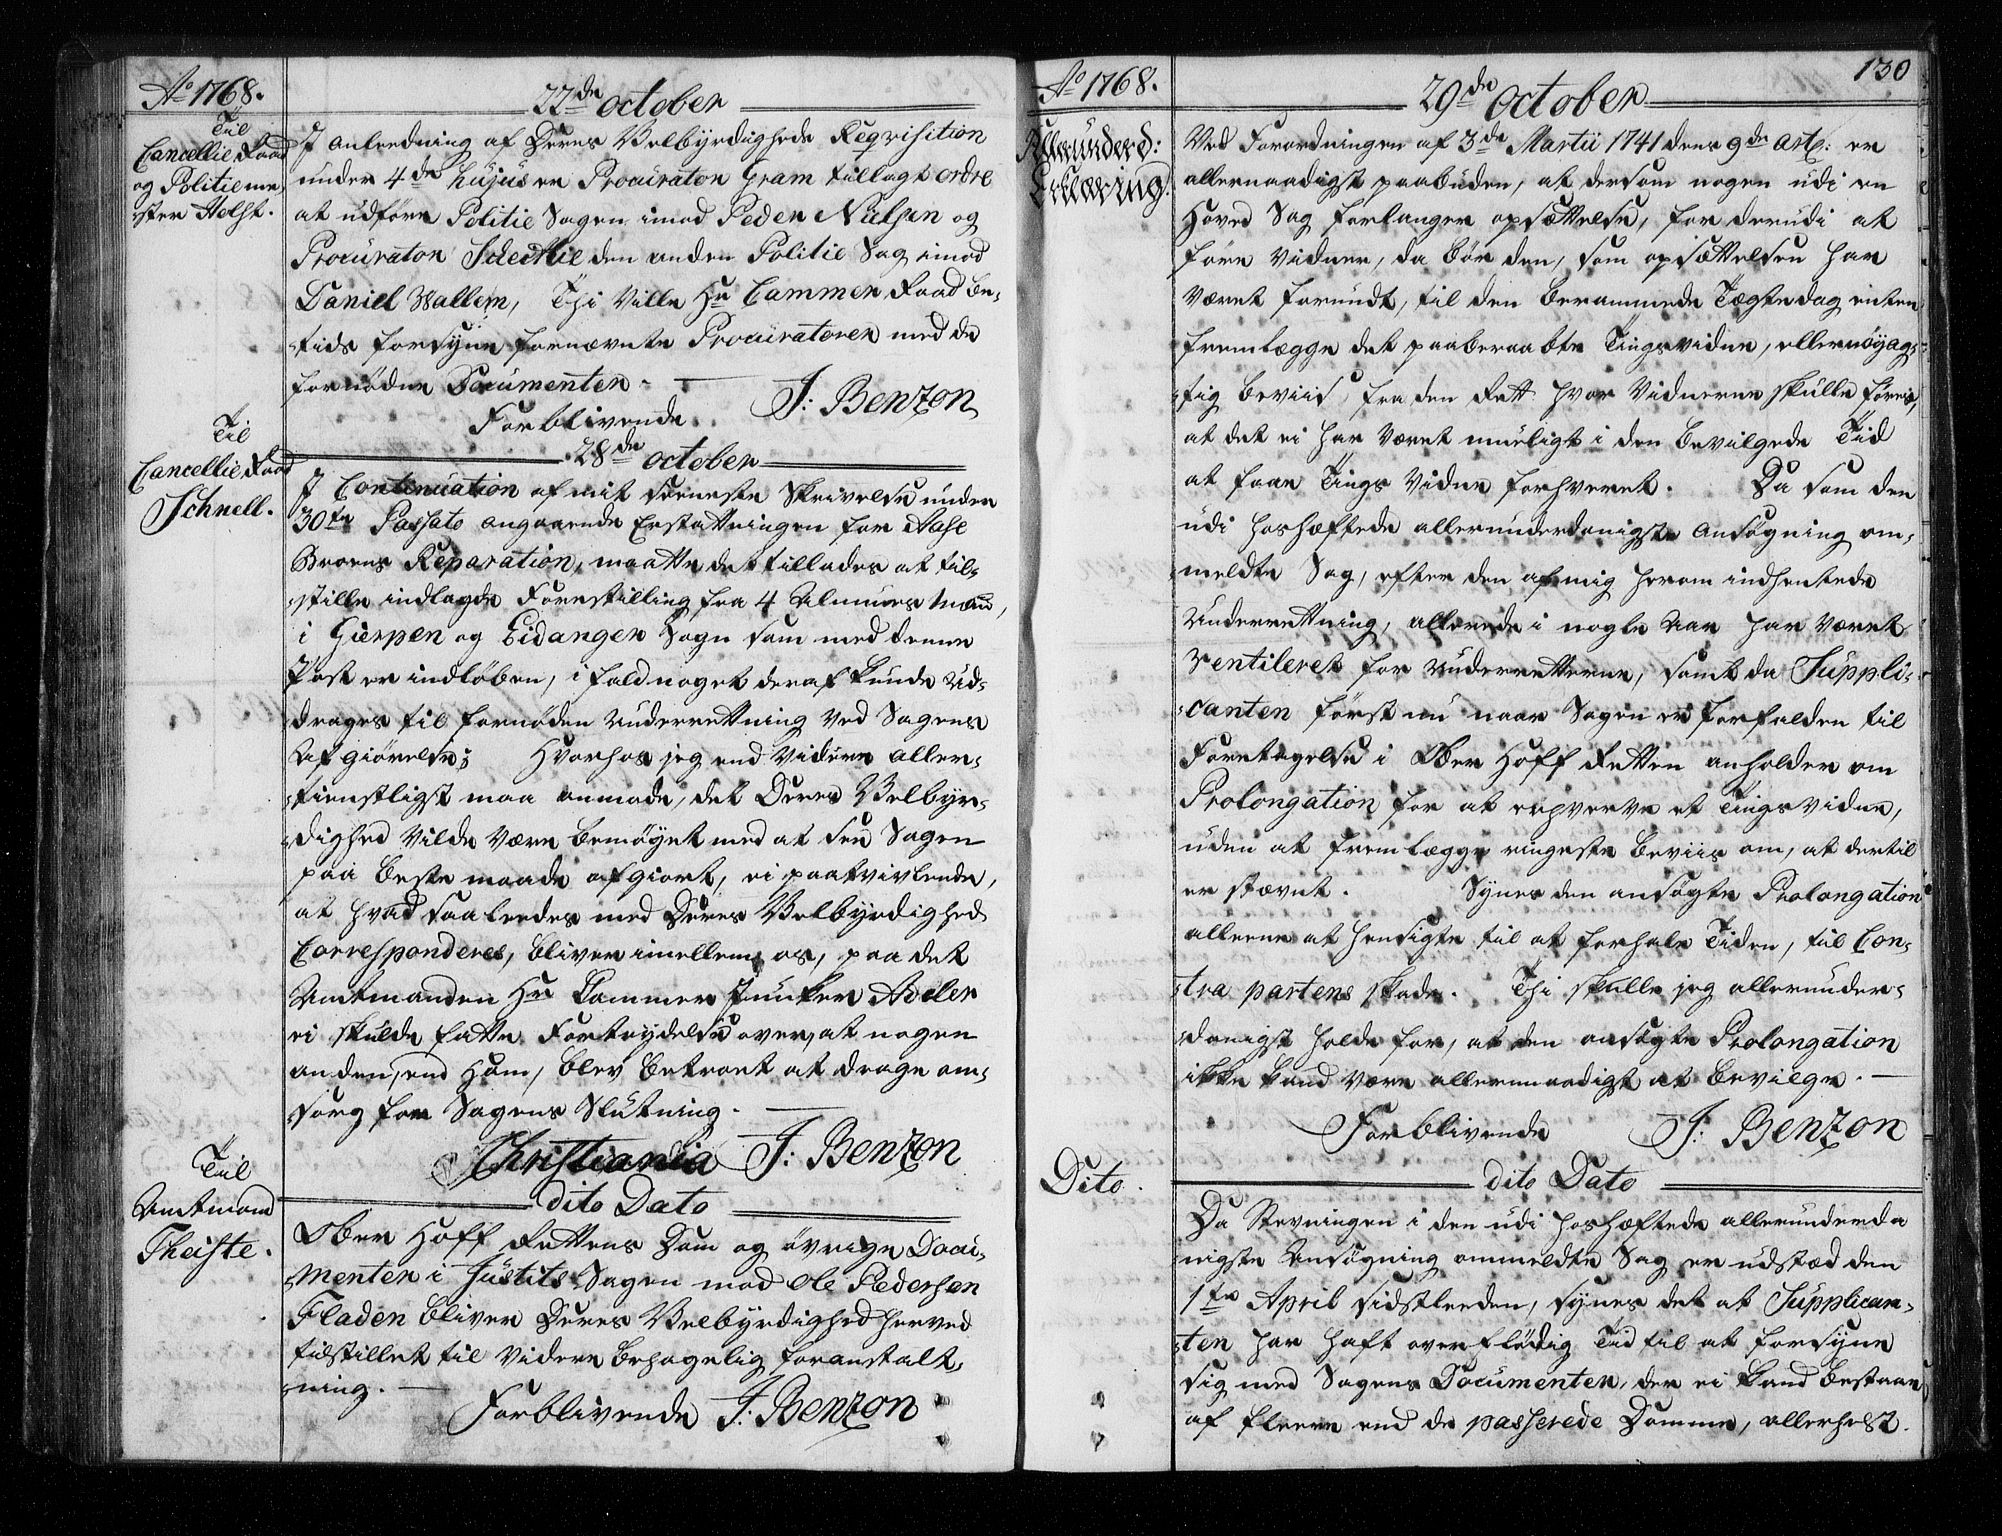 Ao 1768.
22de October
Til
Cancellie Raad
og Politieme-
ster Holst.
I Anledning af Deres Velbyrdigheds Reqvisition
under 4de hujus er Procurator Gram tillagt ordre
at udføre Politie Sagen imod Peder Nielsen og
Procurator Sdechtie den anden Politie Sag imod
Daniel Wallem, Thi ville Hr Cammer Raad be-
tids forsyne fornævnte Procuratorer med de
fornødne Documenter.
Forblivende J: Benzon
28de October
Til
Cancellie Raad
Schnell.
I Continuation af mit seeneste Skrivelse under
30te Passato angaaende Erstatningen for Aase
Broens Reparation, maatte det tillades at til-
stille indlagde Forestilling fra 4 Almues Mænd,
i Gierpen og Eidanger Sogn som med denne
Post er indløben, ifald noget deraf kunde ud-
drages til fornøden Underrettning ved Sagens
Afgiørelse; Hvorhos jeg end videre aller-
tienstligst maa anmode, det Deres Velbyr-
dighed vilde være bemøyet med at see Sagen
paa beste maade afgiort, ei paatvivlende,
at hvad saaleedes med Deres Velbyrdighed
Corresponderes, bliver imellem os, paa det
Amtmanden Hr Cammer Junker Adeler
ei skulde fatte Fortrydelse over, at nogen
anden, end Ham, blev betroet at drage om-
sorg for Sagens Slutning.
Christiania J: Benzon
dito Dato
Til
Amtmand
Theiste.
Ober Hoff Rettens Dom og øvrige Docu-
menter i Justits Sagen mod Ole Pedersen
Fladen bliver Deres Velbyrdighed herved
tilstillet til videre behagelig foranstalt-
ning.
Forblivende J: Benzon
Ao 1768.
29de October
130
Allerunderd:
Erklæring
Ved Forordningen af 3de Martii 1741 dens 9de Art: er
allernaadigst paabuden, at dersom nogen udi en
Hoved Sag forlanger opsættelse, for derudi at
føre Vidner, da bør den, som opsættelsen har
været forundt, til den berammede Tægtedag enten
fremlægge det paaberaabte Tingsvidne, eller nøyag-
tig beviis fra den Rett hvor Vidnerne skulle føres,
at det ei har været mueligt i den bevilgede Tid
at faae Tings Vidne forhvervet. Da som den
udi hoshæftede allerunderdanigste Ansøgning om-
meldte Sag, efter den af mig herom indhentede
Underrettning, allerede i nogle Aar har været
ventileret for Underretterne, samt da Suppli-
canten først nu naar Sagen er forfalden til
Foretagelse i Ober Hoff Retten anholder om
Prolongation for at erhverve et Tingsvidne,
uden at fremlægge ringeste beviis om, at dertil
er stævnt. Synes den ansøgte Prolongation
alleene at hensigte til at forhale Tiden, til Con-
tra partens skade. Thi skulle jeg allerunder-
danigst holde for, at den ansøgte Prolongation
ikke kand være allernaadigst at bevilge.
Forblivende J: Benzon
dito Dato
Dito.
Da Stevningen i den udi hoshæftede allerunderda
nigste Ansøgning ommeldte Sag er udstæd den
1te April sidstleeden, synes det at Supplican-
ten har haft overflødig Tid til at forsyne
sig med Sagens Documenter, der ei kand bestaae
af fleere end de passerede Domme, allerhelst.